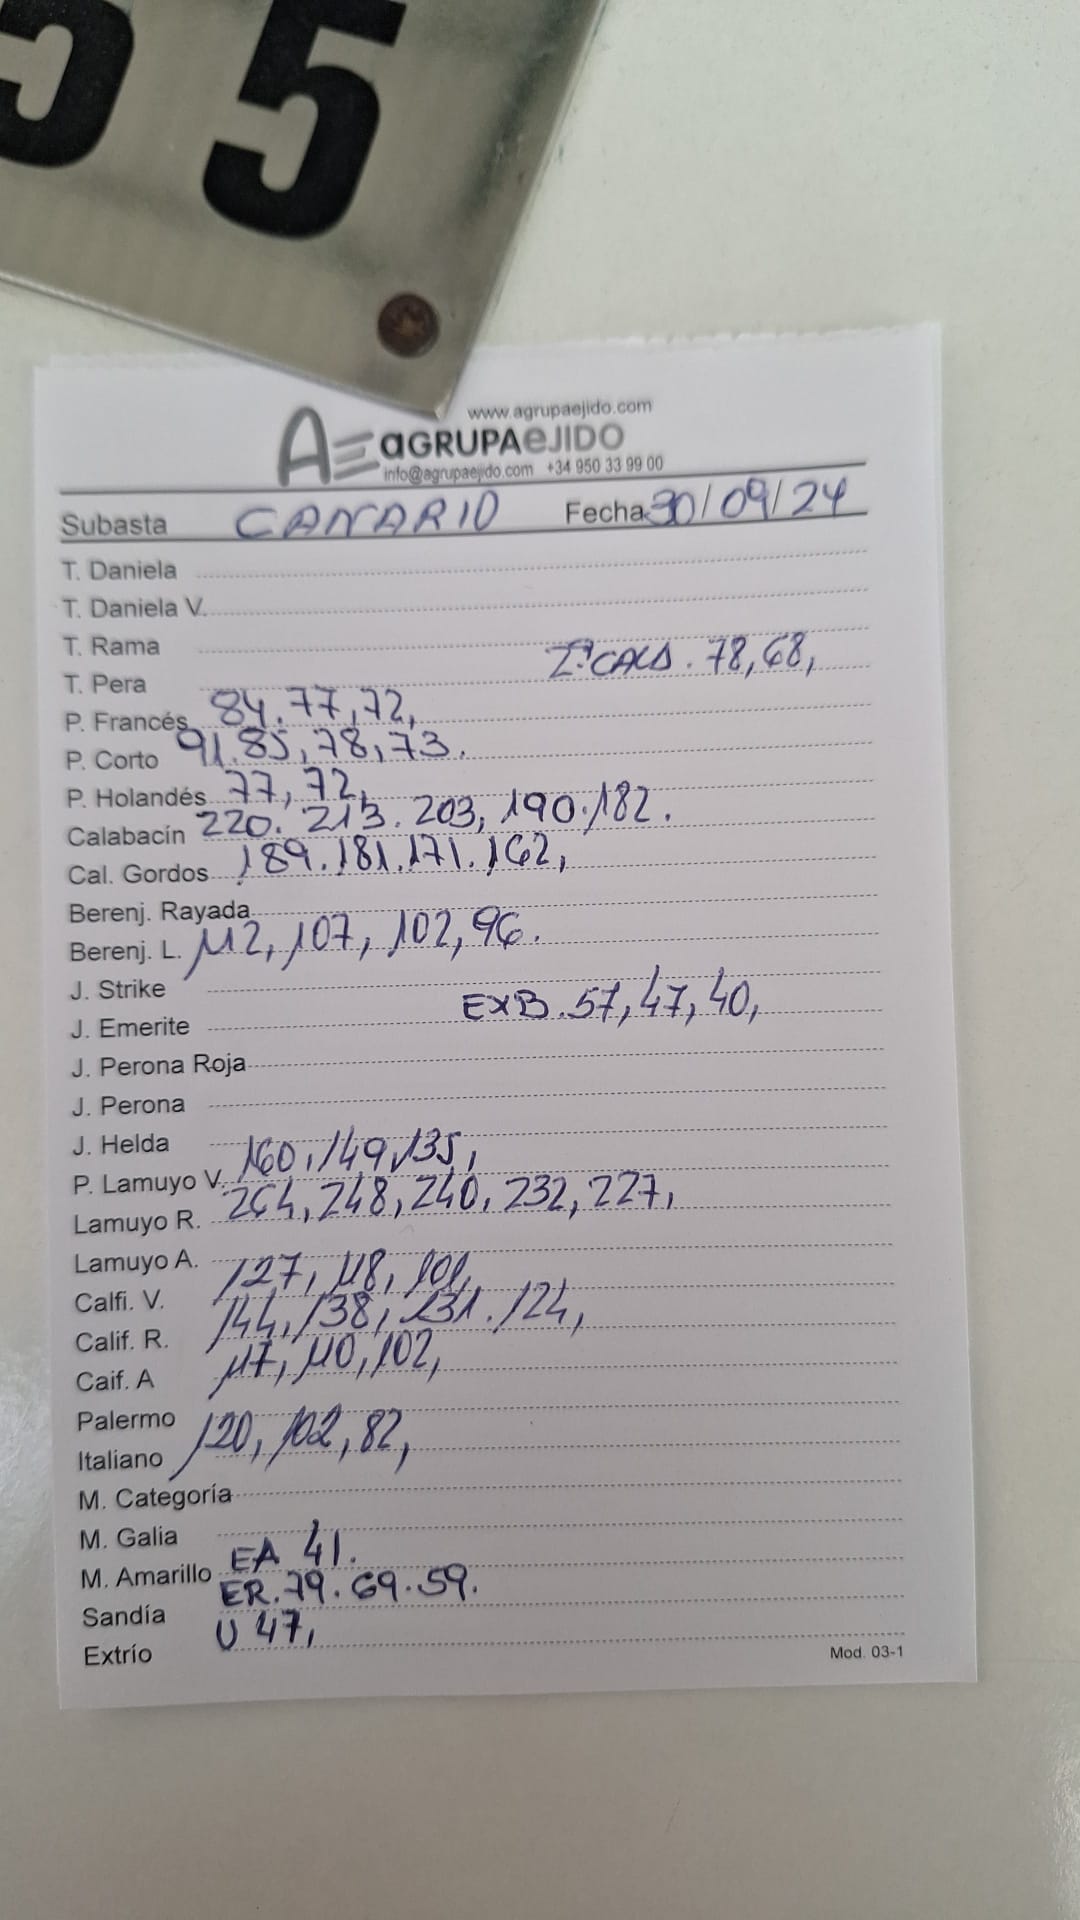 55
www.agrupaejido.com
AE aGRUPAeJIDO
info@agrupaejido.com +34 950 33 99 00
Subasta CANARIO Fecha 30/09/24
T. Daniela
T. Daniela V.
T. Rama
2ª CALA. 78, 68,
T. Pera
P. Francés 84. 77, 72,
P. Corto 91. 85, 78, 73.
P. Holandés 77, 72,
Calabacín 220. 213. 203, 190. 182.
Cal. Gordos 189. 181. 171. 162,
Berenj. Rayada
Berenj. L. 112, 107, 102, 96.
J. Strike
EXB. 57, 47, 40,
J. Emerite
J. Perona Roja
J. Perona
J. Helda
P. Lamuyo V. 160, 149, 135,
Lamuyo R. 264, 248, 240, 232, 227,
Lamuyo A.
Calfi. V. 127, 118, 101,
Calif. R. 144, 138, 131. 124,
Caif. A 117, 110, 102,
Palermo
Italiano 120, 102, 82,
M. Categoría
M. Galia
M. Amarillo EA 41.
Sandía ER. 79. 69. 59.
Extrío U 47,
Mod. 03-1